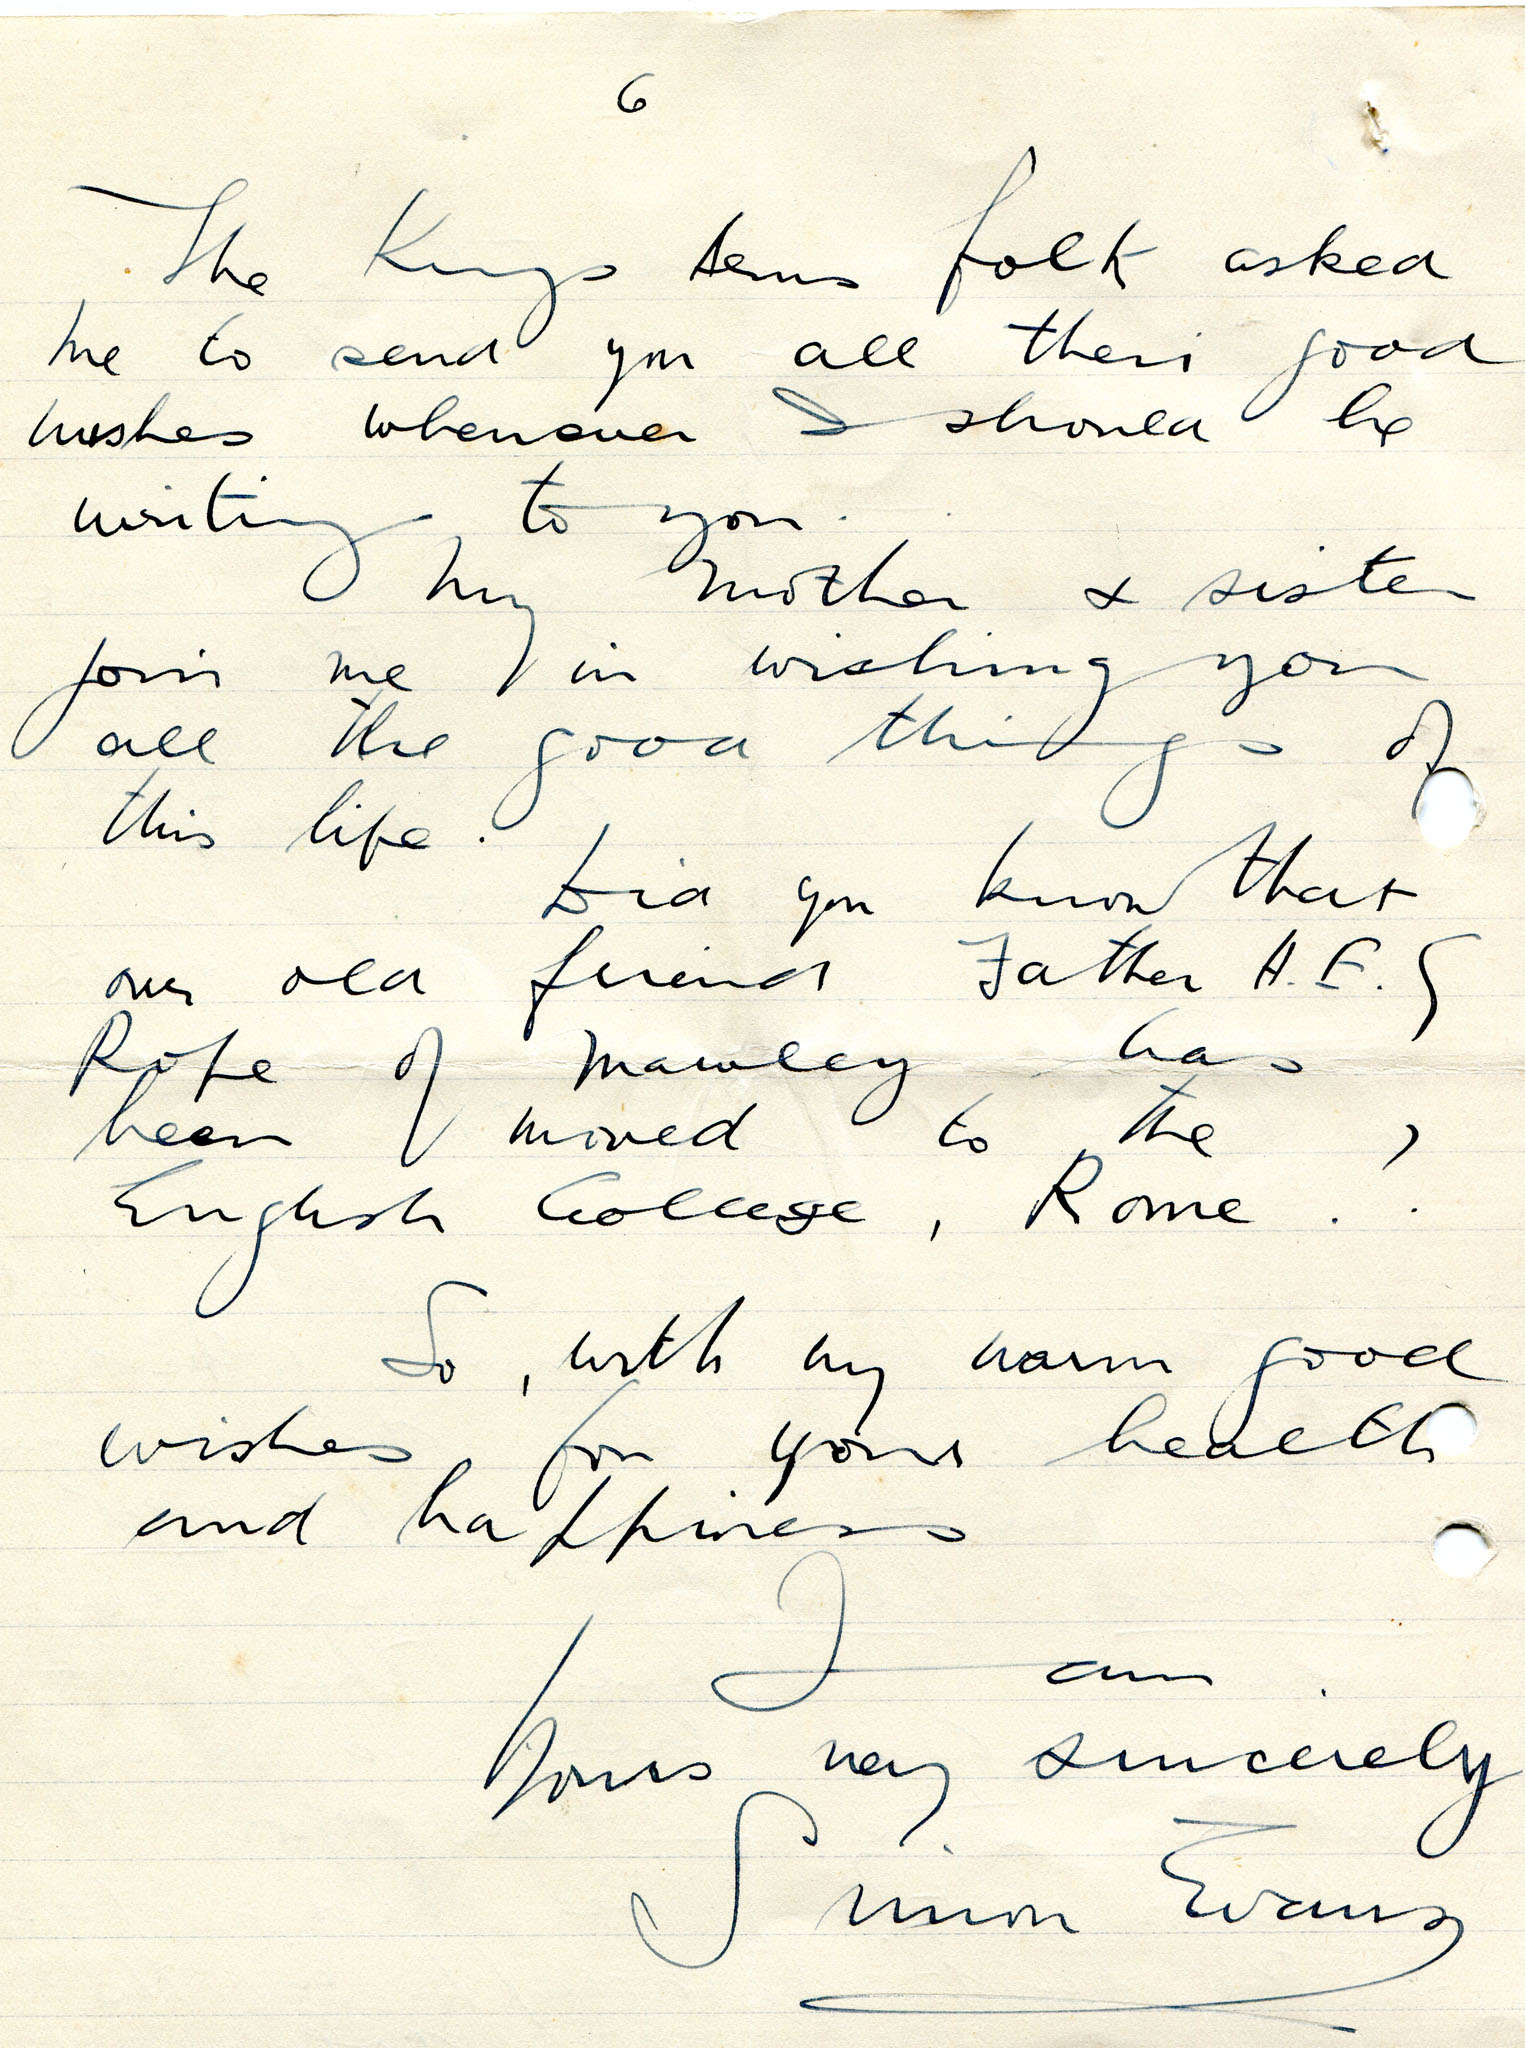 6
The Kings Arms folk asked
me to send you all their good
wishes whenever I should be
writing to you.
My Mother & sister
join me in wishing you
all the good things of
this life.
Did you know that
our old friend Father H. E. G
Rope of Mawley has
been moved to the
English College, Rome ?
So, with my warm good
wishes for your health
and happiness
I am
Yours very sincerely
Simon Evans